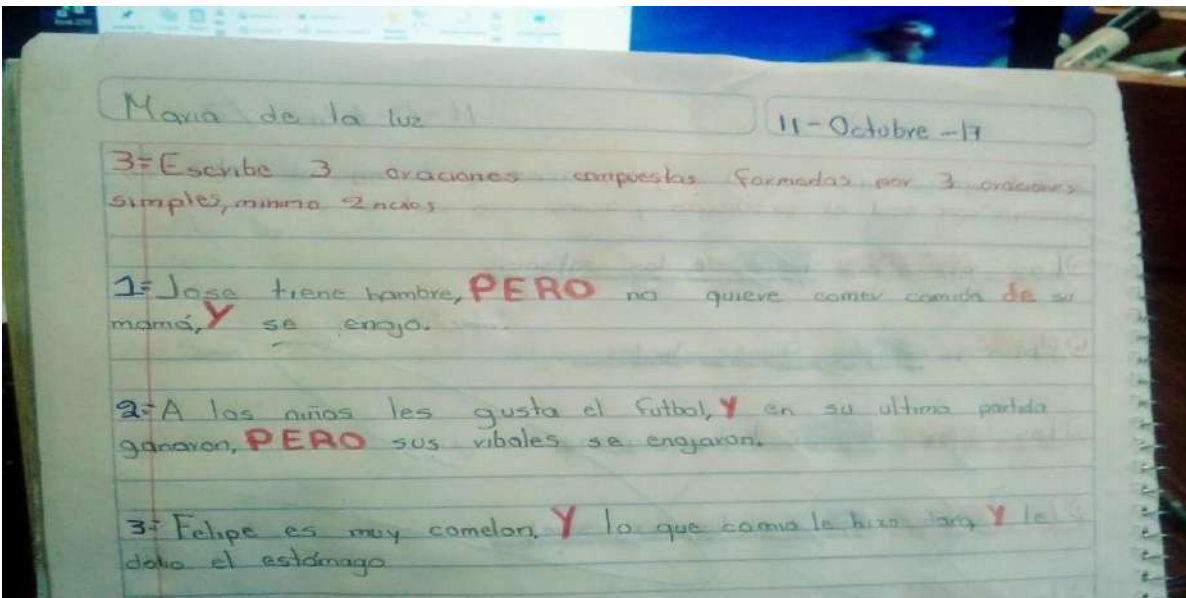 Maria de la luz
11-Octubre-17
3= Escribe 3 oraciones compuestas formadas por 3 oraciones
simples, minimo 2 nexos
1= Jose tiene hambre, PERO no quiere comer comida de su
mamá, Y se enojo.
2= A los niños les gusta el futbol, Y en su ultimo partido
ganaron, PERO sus ribales se enojaron.
3= Felipe es muy comelon, Y lo que comio le hizo Y le
dolio el estómago